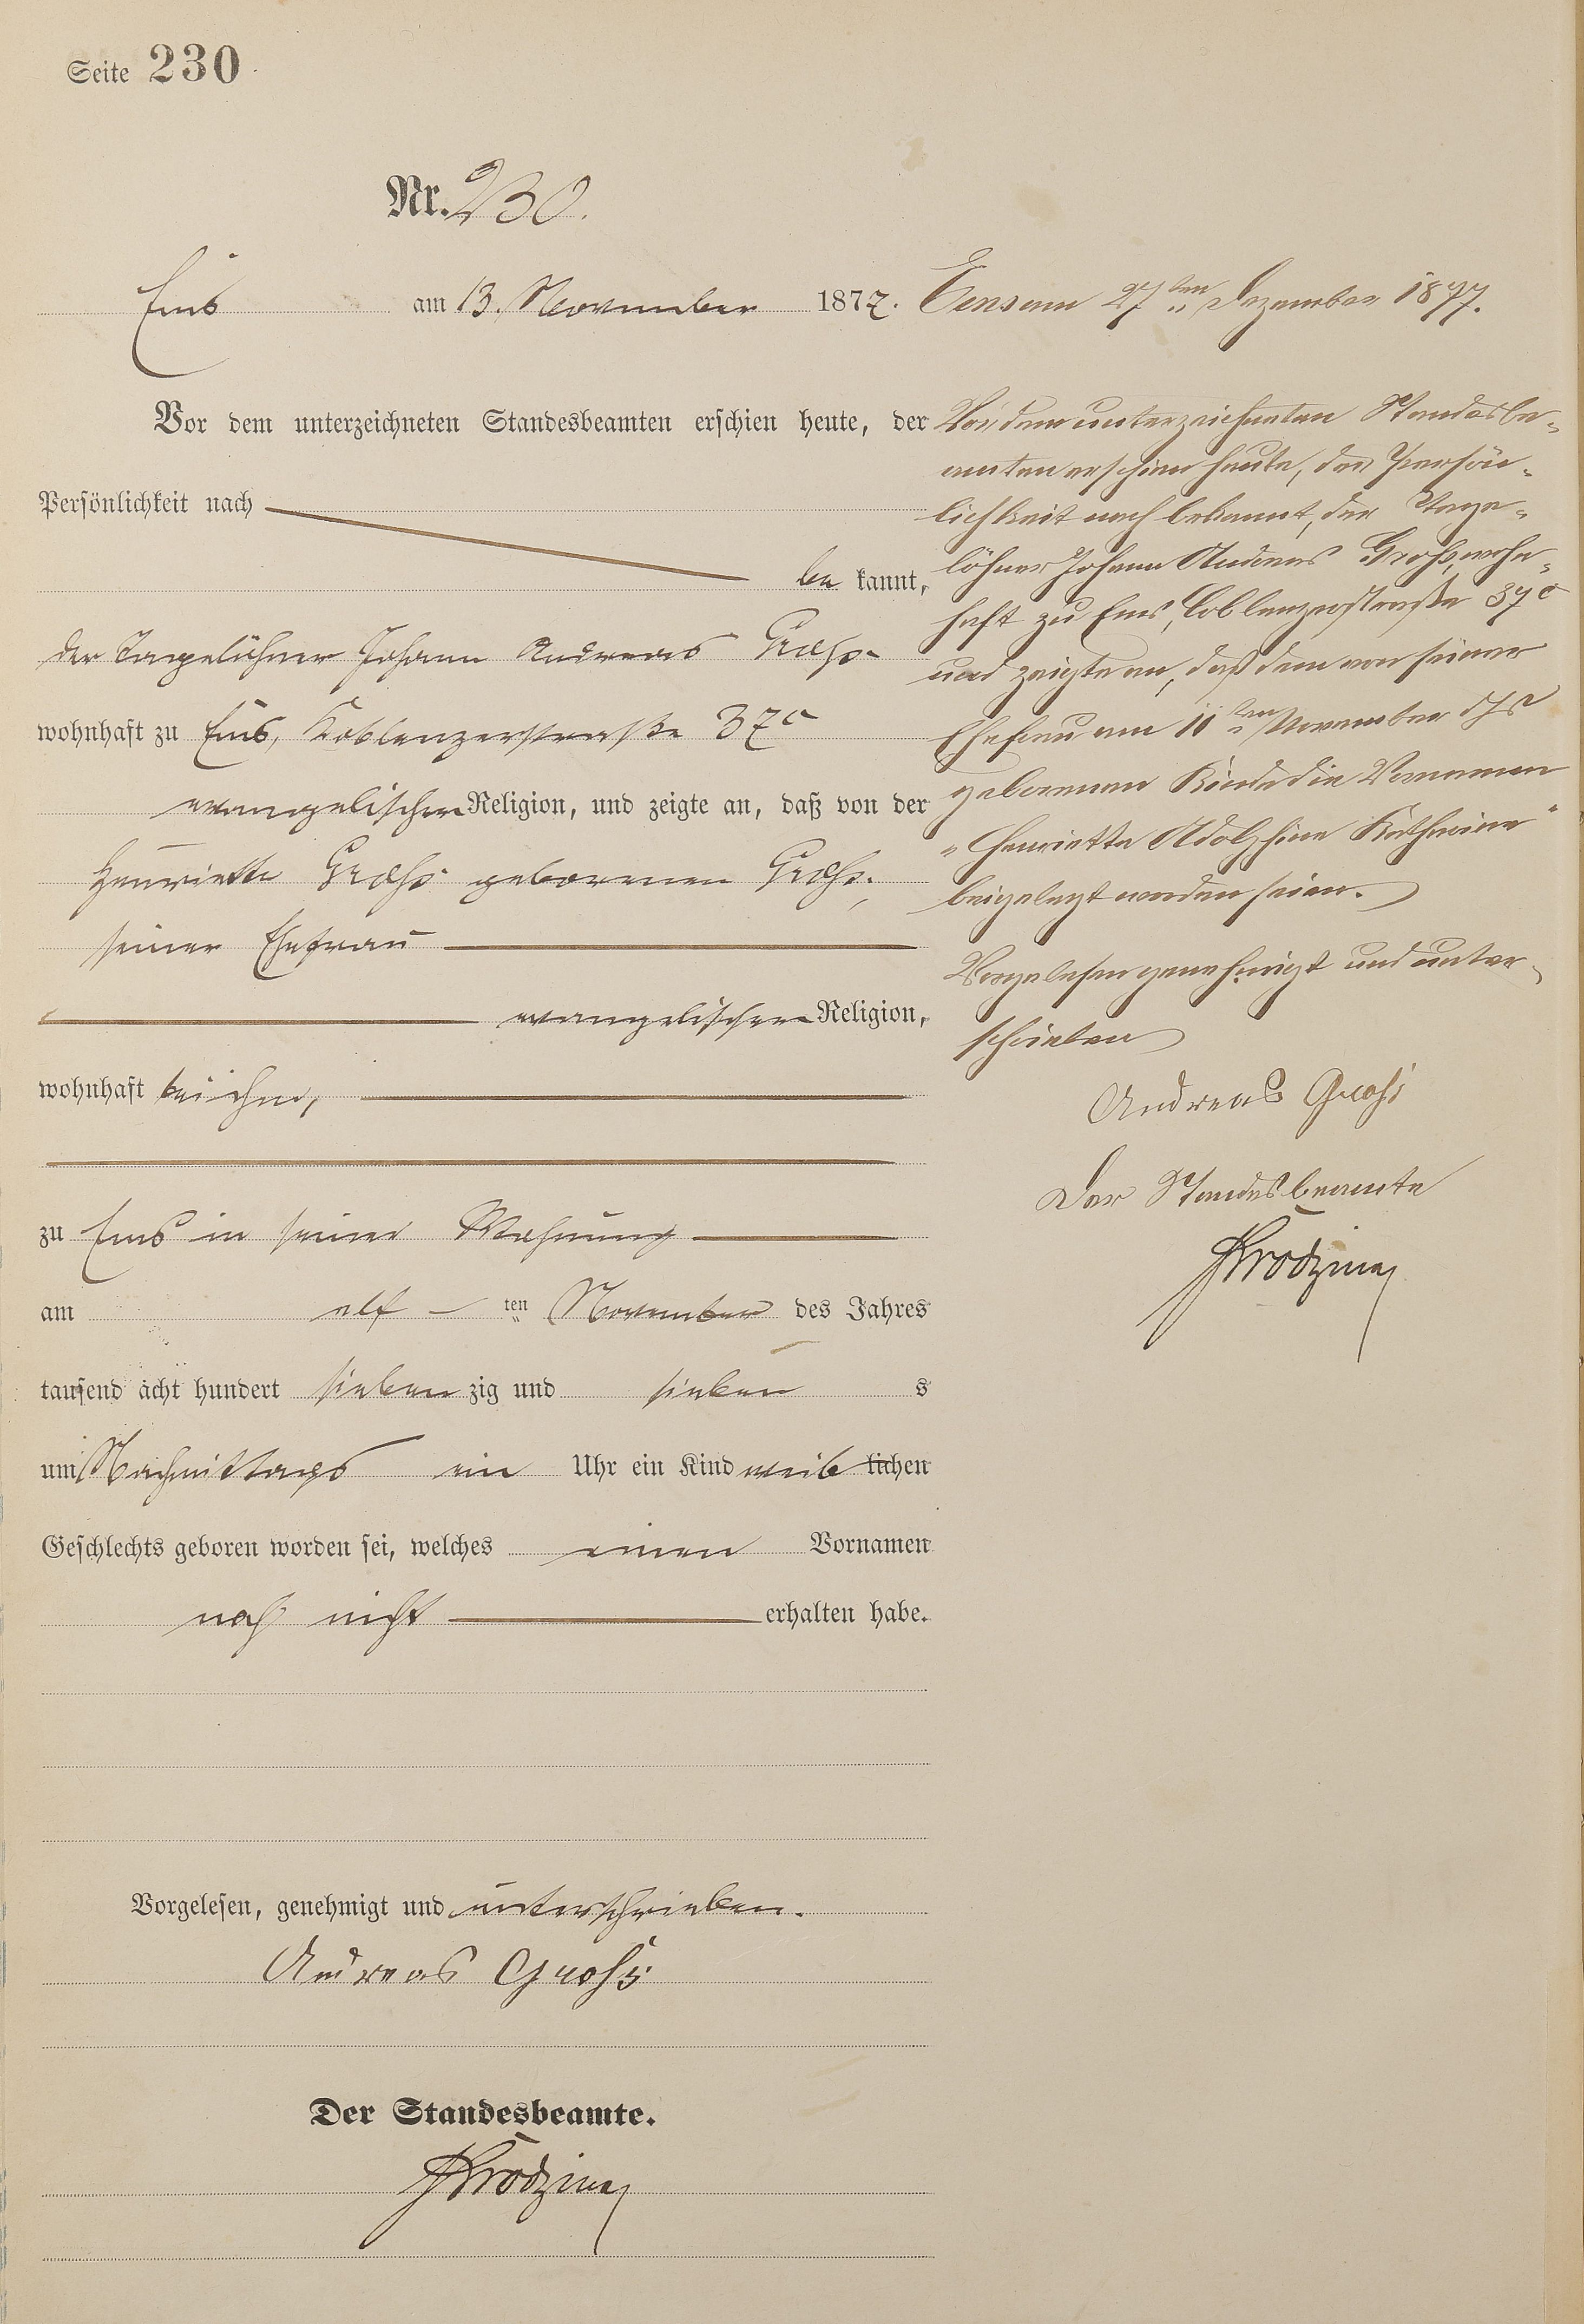 Seite 230
Nr. 230.
Ems am 13. November 1877.
Vor dem unterzeichneten Standesbeamten erschien heute, der
Persönlichkeit nach
be kannt,
der Tagelöhner Johann Andreas Groß
wohnhaft zu Ems, Koblenzerstraße 37c
evangelischer Religion, und zeigte an, daß von der
Henriette Groß geborenen Groß,
seiner Ehefrau
evangelischer Religion,
wohnhaft bei ihm,
zu Ems in seiner Wohnung
am elf ten November des Jahres
tausend acht hundert sieben zig und sieben s
um Nachmittags ein Uhr ein Kind weib lichen
Geschlechts geboren worden sei, welches einen Vornamen
noch nicht erhalten habe.
Vorgelesen, genehmigt und unterschrieben.
Andreas Groß
Der Standesbeamte.
Ems am 27ten Dezember 1877.
Vor dem unterzeichneten Standesbe-
amten erschien heute, der Persön-
lichkeit nach bekannt, der Tage-
löhner Johann Andreas Groß, wohn-
haft zu Ems, Coblenzerstraße 37c
und zeigte an, daß dem von seiner
Ehefrau am 11ten November d Js
geborenen Kinde die Vornamen
"Henriette Adolphine Katharine"
beigelegt worden seien.
Vorgelesen genehmigt und unter-
schrieben
Andreas Groß
Der Standesbeamte